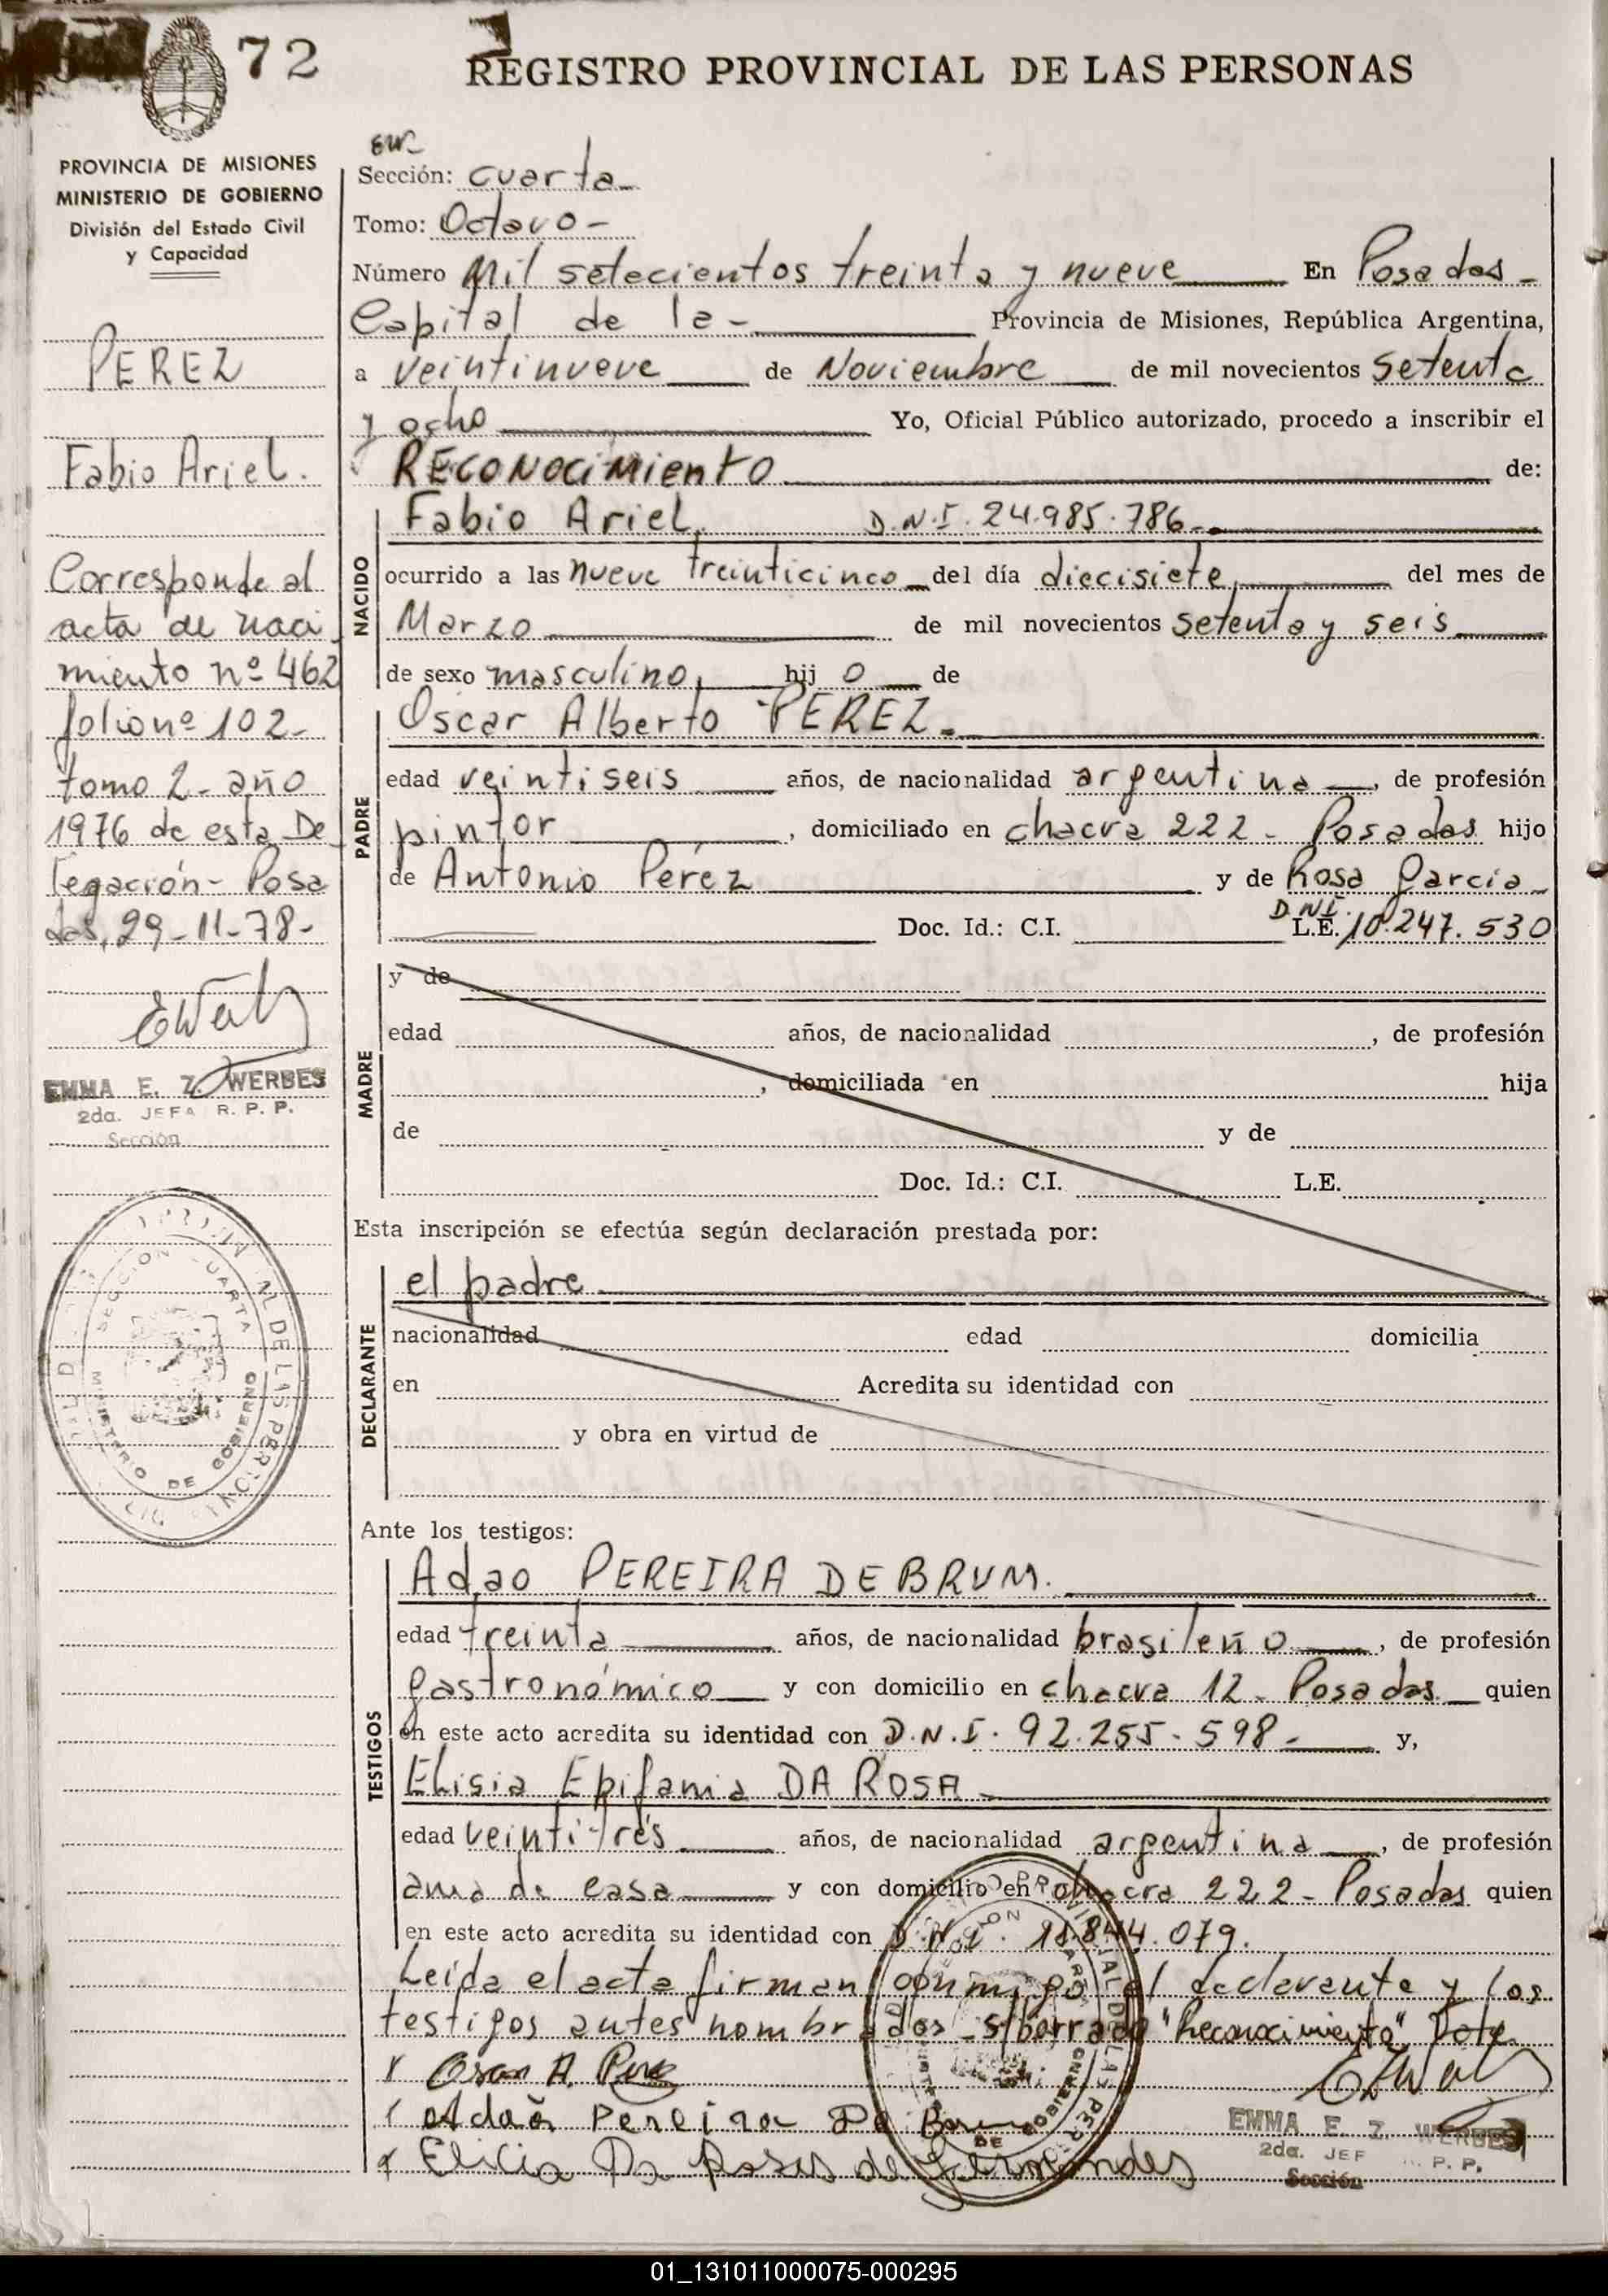 72
REGISTRO PROVINCIAL DE LAS PERSONAS
PROVINCIA DE MISIONES
MINISTERIO DE GOBIERNO
División del Estado Civil
y Capacidad
PEREZ
Fabio Ariel.
Corresponde al
acta de naci
miento nº 462
folio nº 102-
tomo 2- año
1976 de esta De
legación- Posa
das, 29-11-78-
EMMA E. Z. WERBES
2da. JEFA R. P. P.
Sección
Sección: cuarta
Tomo: Octavo-
Número Mil setecientos treinta y nueve En Posadas-
Capital de la- Provincia de Misiones, República Argentina,
a veintinueve de Noviembre de mil novecientos setenta
y ocho Yo, Oficial Público autorizado, procedo a inscribir el
RECONOCIMIENTO de:
NACIDO
Fabio Ariel, D.N.I. 24.985.786.-
ocurrido a las nueve treinticinco del día diecisiete, del mes de
Marzo de mil novecientos setenta y seis
de sexo masculino, hij o de
PADRE
Oscar Alberto PEREZ.
edad veintiseis años, de nacionalidad argentina, de profesión
pintor, domiciliado en chacra 222- Posadas hijo
de Antonio Pérez y de Rosa Garcia-
Doc. Id.: C.I. D.N.I. L.E. 10.247.530
MADRE
y de
edad años, de nacionalidad , de profesión
, domiciliada en hija
de y de
Doc. Id.: C.I. L.E.
Esta inscripción se efectúa según declaración prestada por:
DECLARANTE
el padre
nacionalidad edad domicilia
en Acredita su identidad con
y obra en virtud de
Ante los testigos:
TESTIGOS
Adao PEREIRA DE BRUM.
edad treinta años, de nacionalidad brasileño, de profesión
gastronómico y con domicilio en chacra 12- Posadas quien
en este acto acredita su identidad con D.N.I. 92.255.598- y,
Elisia Epifania DA ROSA
edad veintitrés años, de nacionalidad argentina, de profesión
ama de casa y con domicilio en chacra 222- Posadas quien
en este acto acredita su identidad con D.N.I. 11.844.079.
Leída el acta firman conmigo el declarante y los
testigos antes nombrados- s/borrado "Reconocimiento" Vale
Oscar A. Perez
Adaõ Pereira De Brum
Elicia Da Rosas de Fernandes
EMMA E. Z. WERBES
2da. JEF P. P.
Sección
SECCION CUARTA
MINISTERIO DE GOBIERNO
01_131011000075-000295